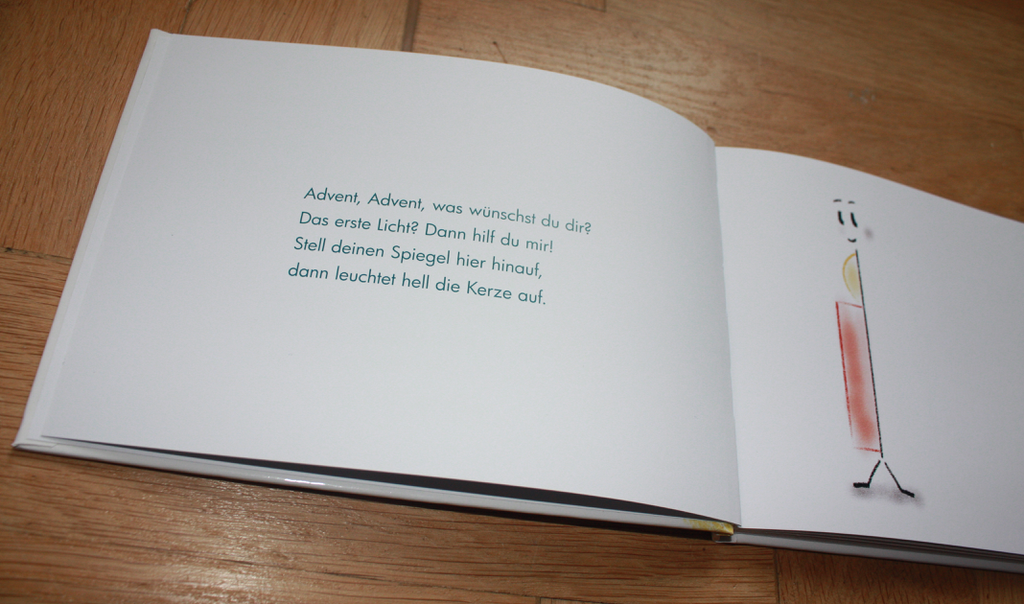 Advent, Advent, was wünschst du dir?
Das erste Licht? Dann hilf du mir!
Stell deinen Spiegel hier hinauf,
dann leuchtet hell die Kerze auf.